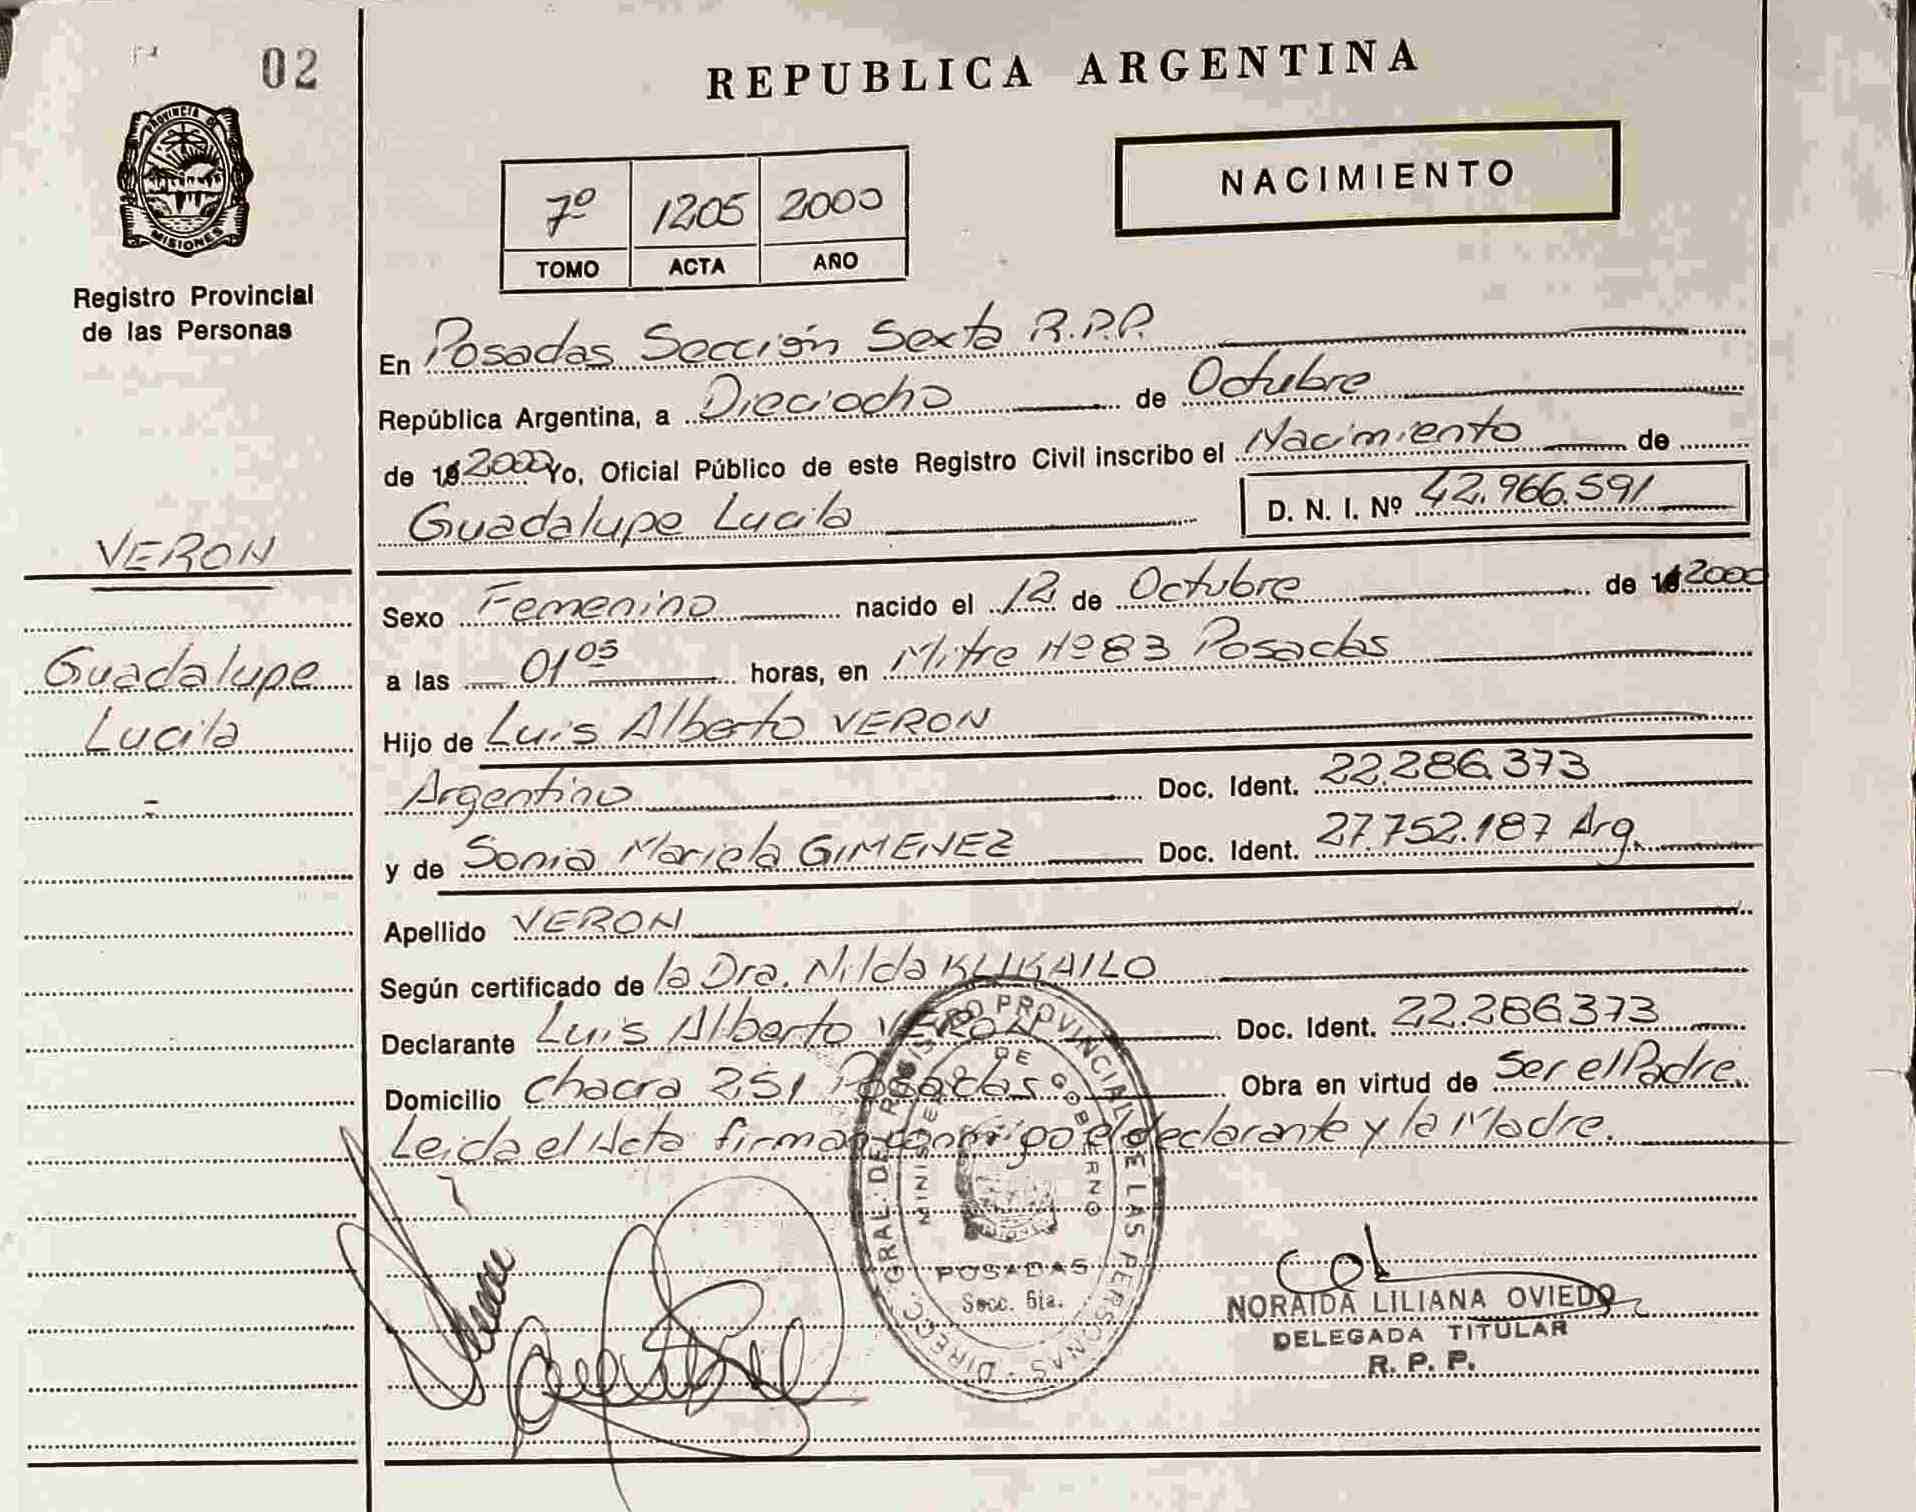 02
REPUBLICA ARGENTINA
PROVINCIA DE
MISIONES
Registro Provincial
de las Personas
7º 1205 2000
TOMO ACTA AÑO
NACIMIENTO
En Posadas Sección Sexta R.P.P.
República Argentina, a Dieciocho de Octubre
de 19 2000 Yo, Oficial Público de este Registro Civil inscribo el Nacimiento de
Guadalupe Lucila D. N. I. Nº 42.966.591
VERON
Guadalupe
Lucila
Sexo Femenino nacido el 12 de Octubre de 19 2000
a las 01 05 horas, en Mitre Nº 83 Posadas
Hijo de Luis Alberto VERON
Argentino Doc. Ident. 22.286.373
y de Sonia Mariela GIMENEZ Doc. Ident. 27.752.187 Arg.
Apellido VERON
Según certificado de la Dra. Nilda
Declarante Luis Alberto VERON Doc. Ident. 22.286.373
Domicilio chacra 251 Posadas Obra en virtud de Ser el Padre.
Leida el Acta firman conmigo el declarante y la Madre.
DIRECC. GRAL. DE REGISTRO PROVINCIAL DE LAS PERSONAS
MINISTERIO DE GOBIERNO
POSADAS
Secc. 6ta.
NORAIDA LILIANA OVIEDO
DELEGADA TITULAR
R. P. P.